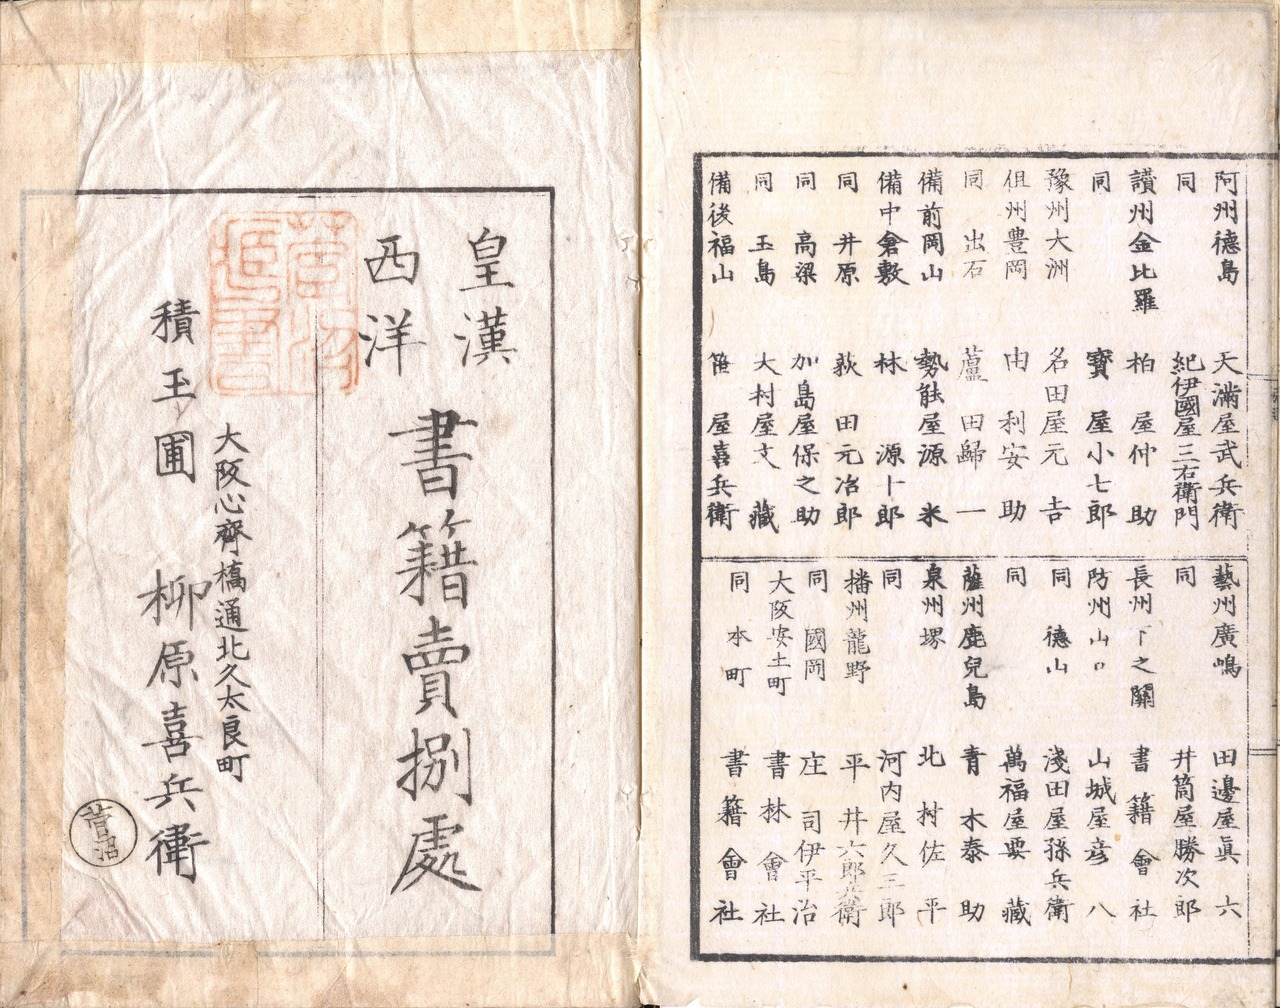 阿州德島 天滿屋武兵衛
同 紀伊國屋三右衛門
讃州金比羅 柏屋仲助
同 寶屋小七郎
豫州大洲 名田屋元吉
但州豊岡 由利安助
同 出石 蘆田歸一
備前岡山 勢能屋源米
備中倉敷 林源十郎
同 井原 荻田元治郎
同 高梁 加島屋保之助
同 玉島 大村屋文藏
備後福山 笹屋喜兵衛
藝州廣嶋 田邊屋眞六
同 井筒屋勝次郎
長州下之關 書籍會社
防州山口 山城屋彦八
同 德山 淺田屋孫兵衛
同 萬福屋要藏
薩州鹿兒島 青木泰助
泉州堺 北村佐平
同 河内屋久三郎
播州龍野 平井六郎兵衛
同 國岡 庄司伊平治
大阪安土町 書林會社
同 本町 書籍會社
皇漢
西洋
書籍賣捌處
大阪心齊橋通北久太良町
積玉圃 柳原喜兵衛
菅沼